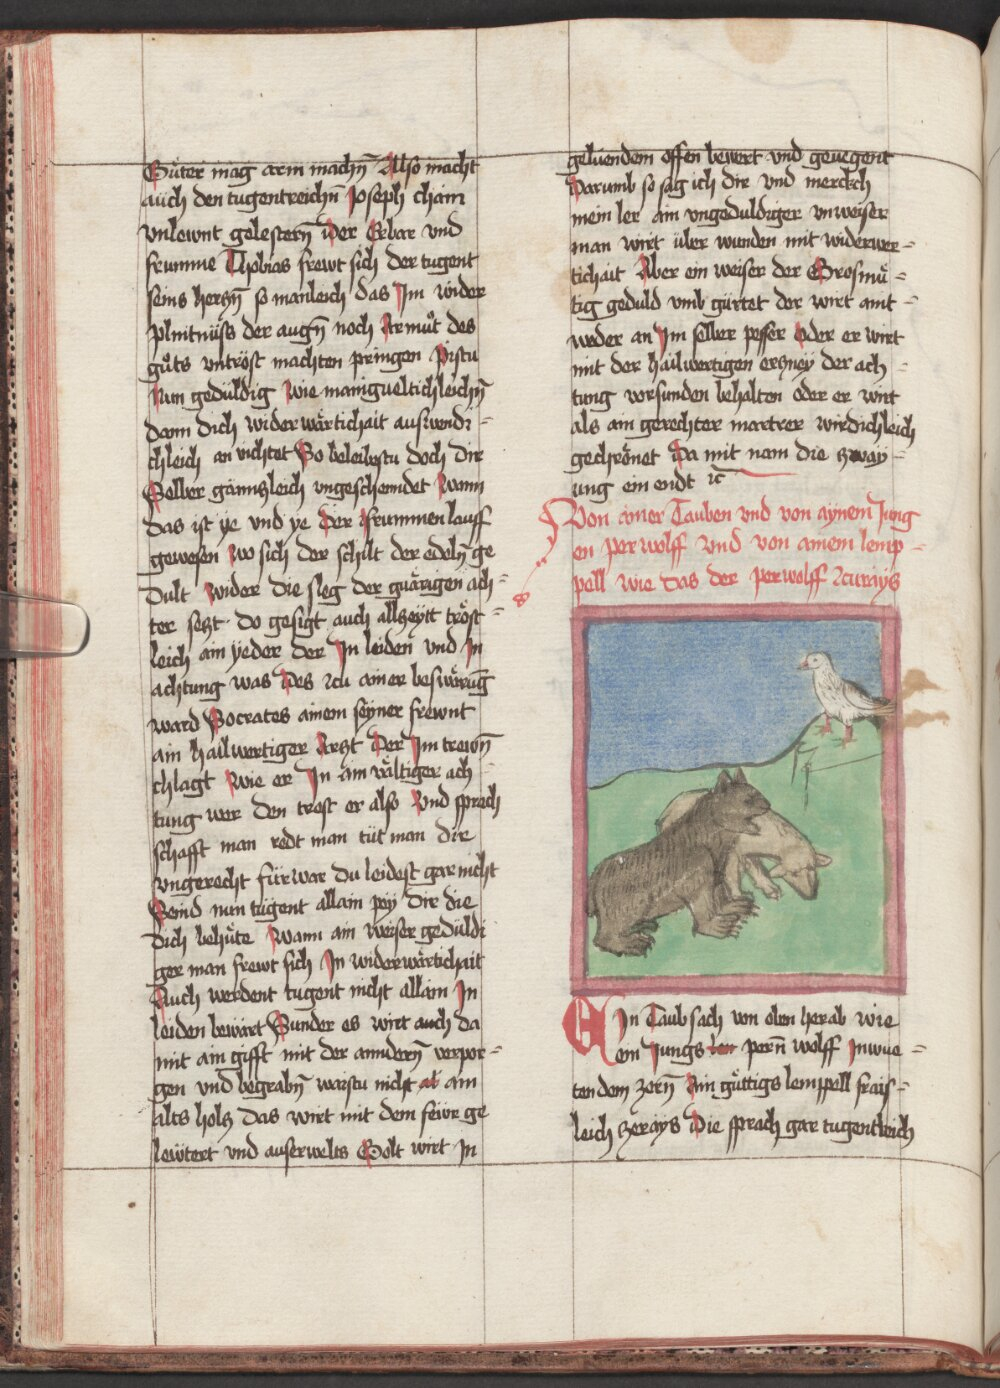 Güter mag arm machn̄ Also macht
auch den tugentreichn̄ Joseph chain
vnlewnt gelestern̄ Der Erber vnd
frumme Thobias frewt sich der tugent
seins herczn̄ so manleich das Im wider
plintnüss der augn̄ noch Armůt des
gůts vntröst machten pringen Pistu
Nun geduldig wie manigueltichleichn̄
dann dich widerwärtichait auswendi-
chleich an vichtet So beleibestu doch dir
Selber gännczleich vngeschendet Wann
das ist ye vnd ye der Frummen lauff
gewesen Wo sich der schilt der edeln̄ ge
dult Wider die sleg der guärigen ach-
ter seczt do gesigt auch allczeytt tröst-
leich ain yeder der In leiden vnd In
achtung was Des zcu ainer beswärūg
ward Socrates ainem seyner frewnt
ain hailwertiger Arczt Der Im trewn̄
chlagt Wie er In ain vältiger ach-
tung wer den trost er also Vnd sprach
schafft man redt man tüt man dir
vngerecht fürwar du leidest gar nicht
Seind nun tugent allain pey dir die
dich behüte Wann ain weiser geduldi
ger man frewt sich In widerwärtichait
Auch werdent tugent nicht allain In
leiden bewärt Sunder es wirt auch da
mit ain gifft mit der anndern̄ verpor-
gen vnd begrabn̄ warstu nichst ain
alts holcz das wirt mit dem feivr ge
lewtert vnd auserwelts Golt wirt In
geluendem offen bewert vnd geuegent
Darumb so sag ich dir vnd merckch
mein ler ain vngeduldiger vnweiser
man wirt über wunden mit widerwer-
tichait Aber ein weiser der Grosmü-
tig geduld vmb gürtet der wirt ant-
weder an Im selber pesser Oder er wirt
mit der hailwertigen erczney der ach-
tung vor sunden behalten oder er wirt
als ain gerechter martrer wirdichleich
gechrönet Da mit nam die zway-
ung ein endt ⁊c̄
Von ainer Tauben vnd von aynem Jung
en perwolff vnd von ainem lemp-
pell wie das der perwolff zcurays
EIn Taub sach von oben herab wie
ein Jungs pern̄ wolff Inwue-
tendem zorn̄ Ain güttigs lemppell frais-
leich zcerays Die sprach gar tugentleich